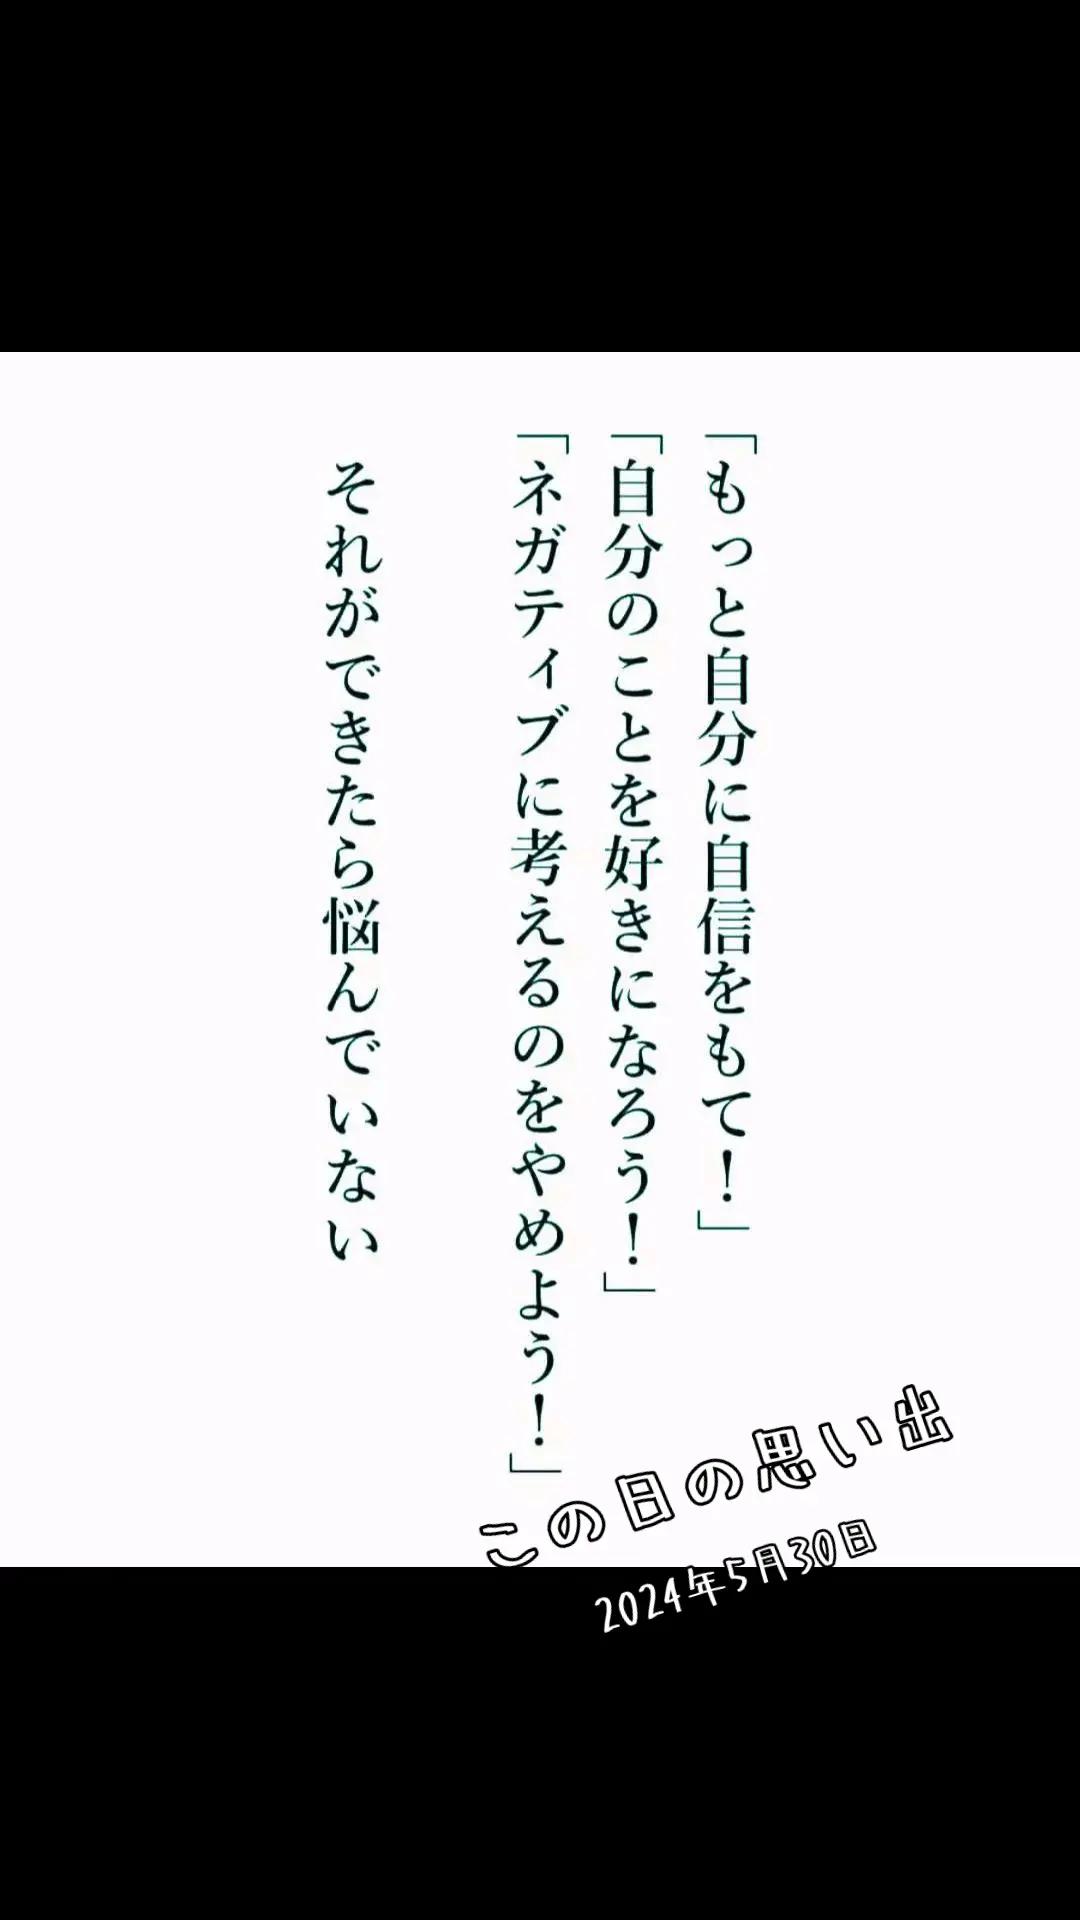 「もっと自分に自信をもて！」
「自分のことを好きになろう！」
「ネガティブに考えるのをやめよう！」
それができたら悩んでいない
この日の思い出
2024年5月30日